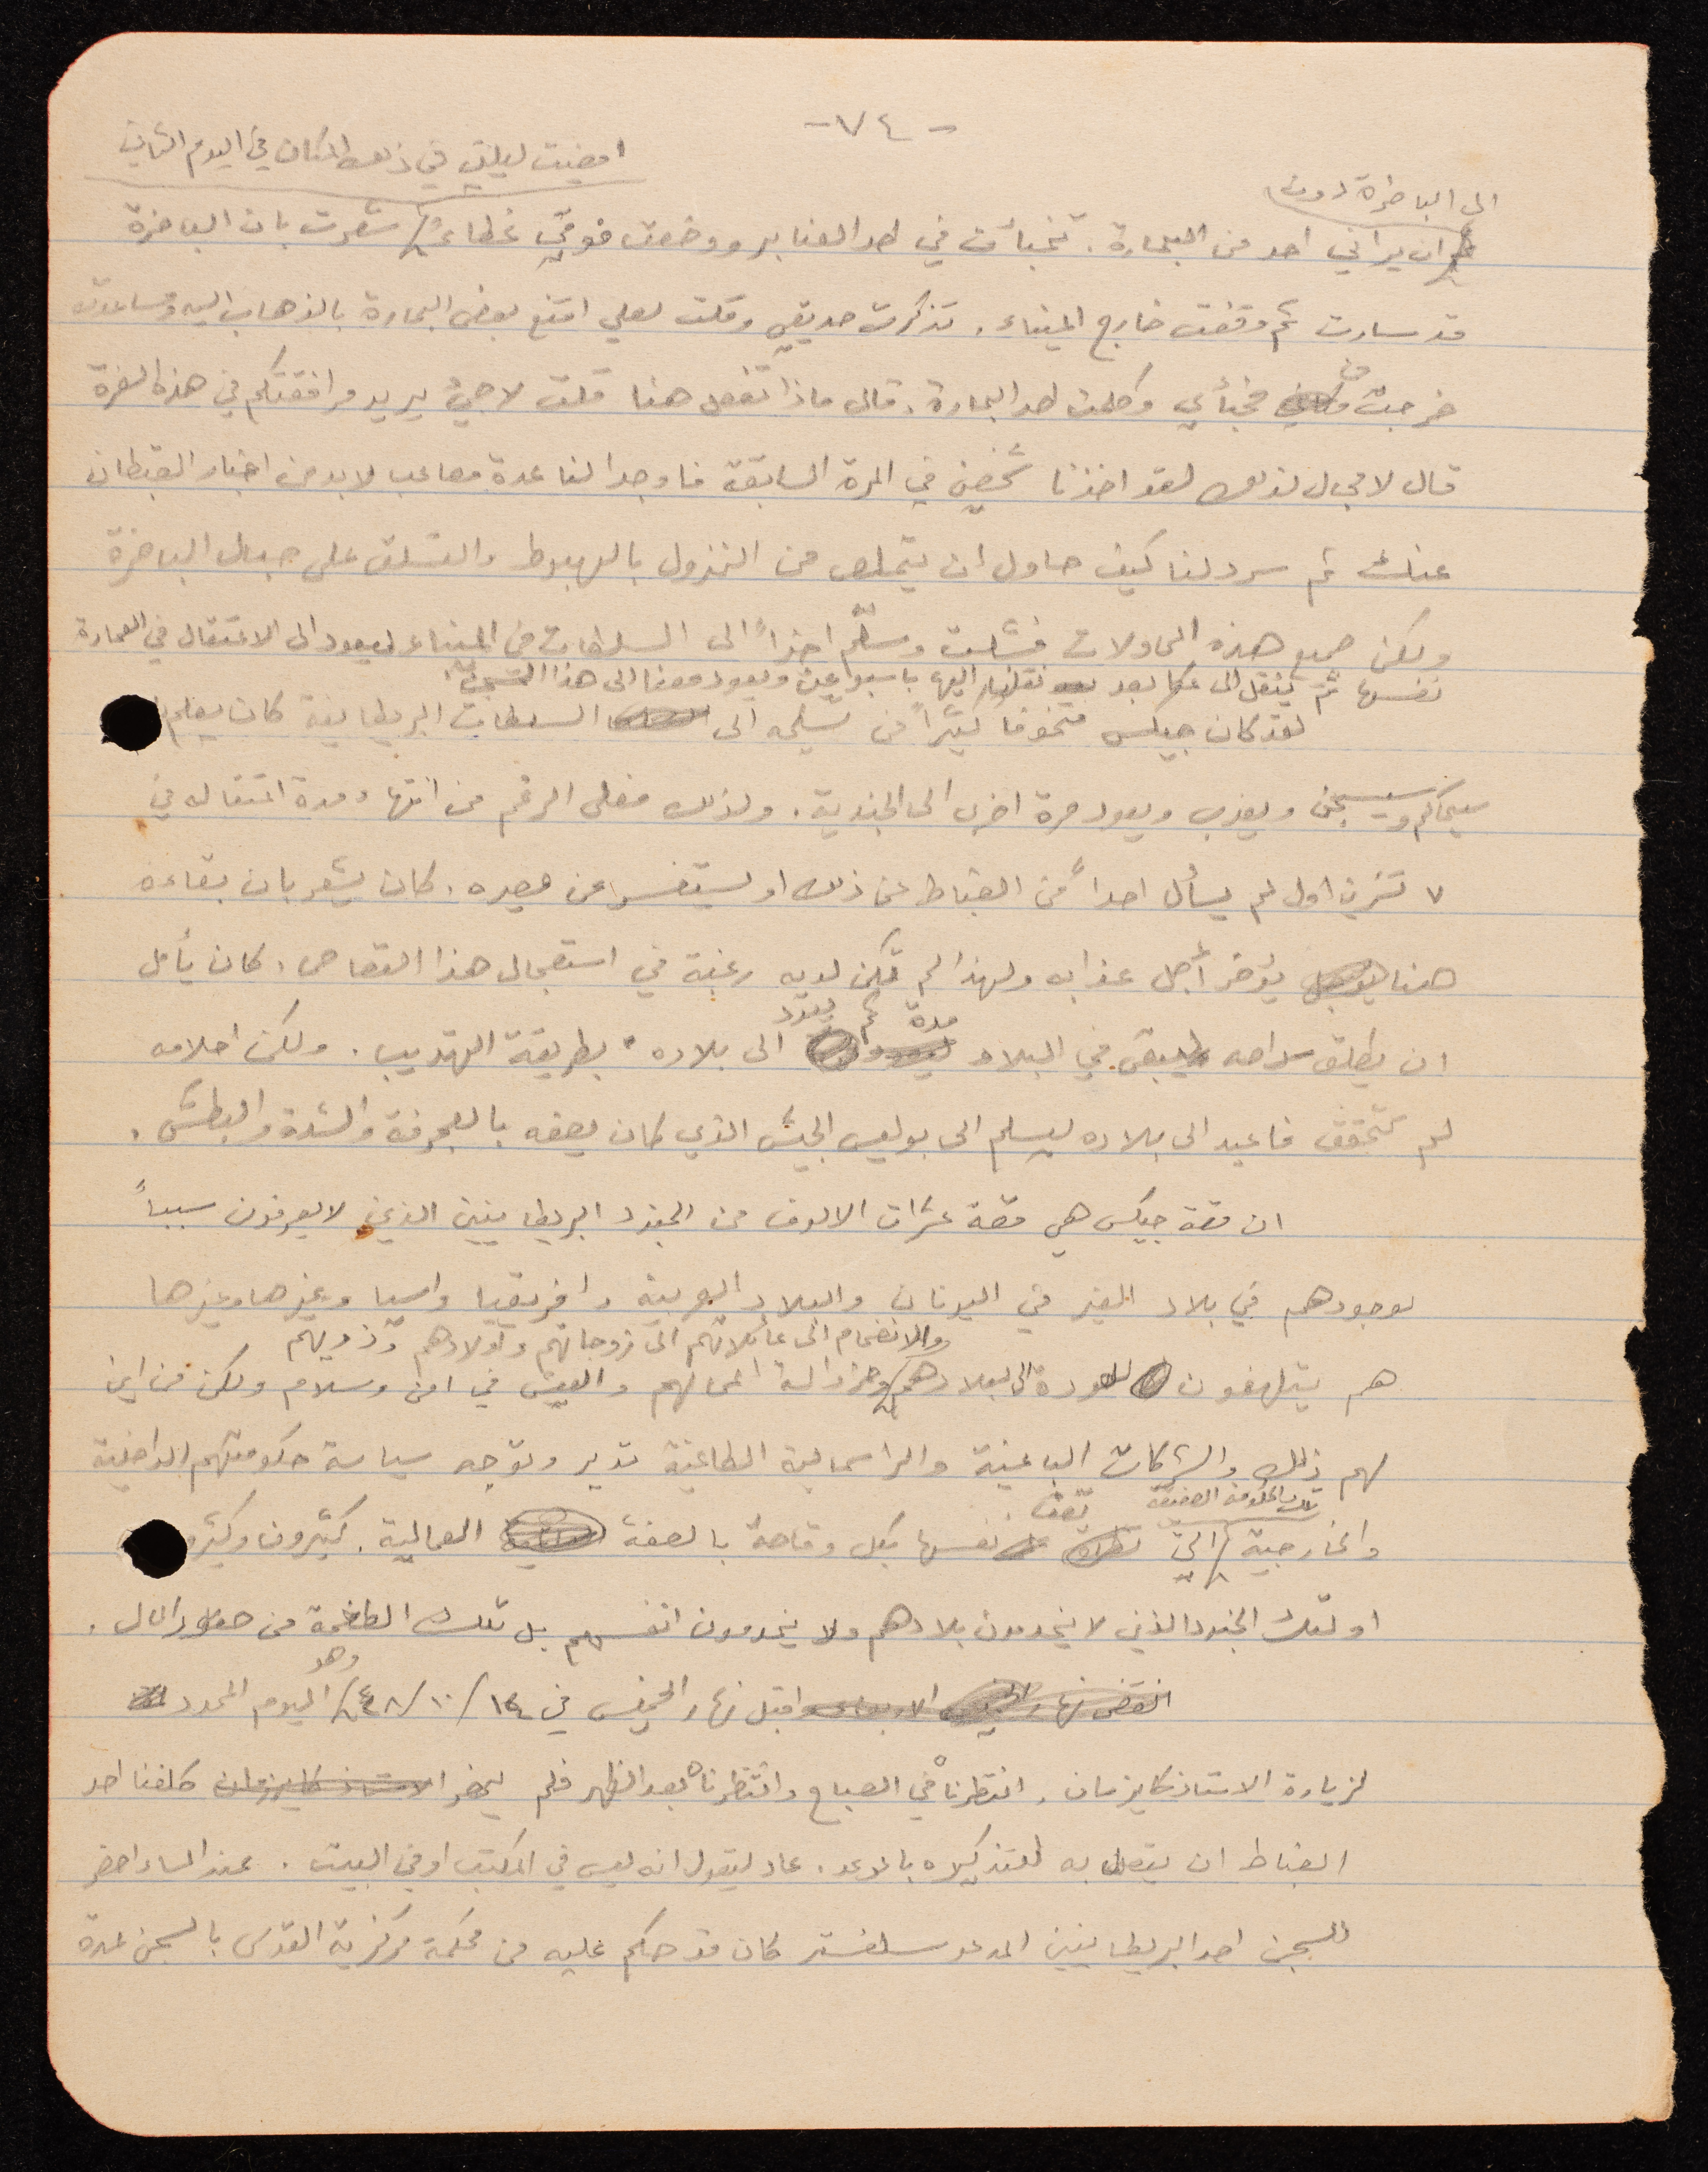 -٧٤-
امضيت ليلتي في ذلك المكان في اليوم الثاني
الى الباخرة دون
ان يراني احد من البحارة. تخبأت في احد العنابر ووضعت فوقي غطاء شعرت بان الباخرة
قد سارت ثم وقفت خارج الميناء. تذكرت صديقي وقلت لعلي اقنع بعض البحارة بالذهاب اليه ومساعدته
خرجت من مخبأي وكلمت احد البحارة. قال ماذا تفعل هنا قلت لاجئ يريد مرافقتكم في هذه السفرة
قال لا مجال لذلك لقد اخذنا شخصين في المرة السابقة فاوجدا لنا عدة مصاعب لا بد من اخبار القبطان
عنك ثم سرد لنا كيف حاول ان يتملص من النزول بالهبوط والتسلق على حبال الباخرة
ولكن جميع هذه المحاولات فشلت وسلّم اخيراً الى السلطات في الميناء ليعود الى الاعتقال في العمارة
نفسها ثم ينقل الى عكا بعد نقلنا اليها باسبوعين ويعود معنا الى هذا السجن
لقد كان جيكس متخوفاً كثيراً من تسليمه الى السلطات البريطانية كان يعلم
سيحاكم وسيسجن ويعذب ويعود مرة اخرى الى الجندية. ولذلك فعلى الرغم من انتهاء مدة اعتقاله في
٧ تشرين اول لم يسأل احداً من الضباط عن ذلك او يستفسر عن مصيره. كان يشعر بان بقاءه
هنا يؤخر أجل عذابه ولهذا لم تكن لديه رغبة في استعجال هذا القصاص. كان يأمل
ان يطلق سراحه ليبقى في البلاد مدة ثم يعود الى بلاده بطريقة التهريب. ولكن احلامه
لم تتحقق فاعيد الى بلاده ليسلم الى بوليس الجيش الذي كان يصفه بالعجرفة والشدة والبطش.
ان قصة جيكس هي قصة عشرات الالوف من الجنود البريطانيين الذين لا يعرفون سبباً
لوجودهم في بلاد الغير في اليونان والبلاد العربية وافريقيا واسيا وغيرها وغيرها
والانضمام الى عائلاتهم الى زوجاتهم واولادهم وذويهم
هم يتلهفون للعودة الى بلادهم ومزاولة اعمالهم والعيش في امن وسلام ولكن من اين
لهم ذلك والشركات الباغية والراسمالية الطاغية تدير وتوجه سياسة حكومتهم الداخلية
والخارجية تلك الحكومة التي تصف نفسها بكل وقاحة بالصفة العمالية. كثيرون وكثيرو
اولئك الجنود الذين لا يخدمون بلادهم ولا يخدمون انفسهم بل تلك الطغمة من المال.
انقضى نهار الاربعاء واقبل نهار الخميس في ١٤/١٠/٤٨ وهو اليوم المحدد
لزيارة الاستاذ كايزمان. انتظرناه في الصباح وانتظرناه بعد الظهر فلم يحضر الاستاذ كايزمان كلفنا احد
الضباط ان يتصل به للتذكيره بالوعد. عاد ليقول انه ليس في المكتب او في البيت. عند المساء احضر
للسجن احد البريطانيين المدعو سلفستر كان قد حكم عليه من محكمة مركزية القدس بالسجن لمدة